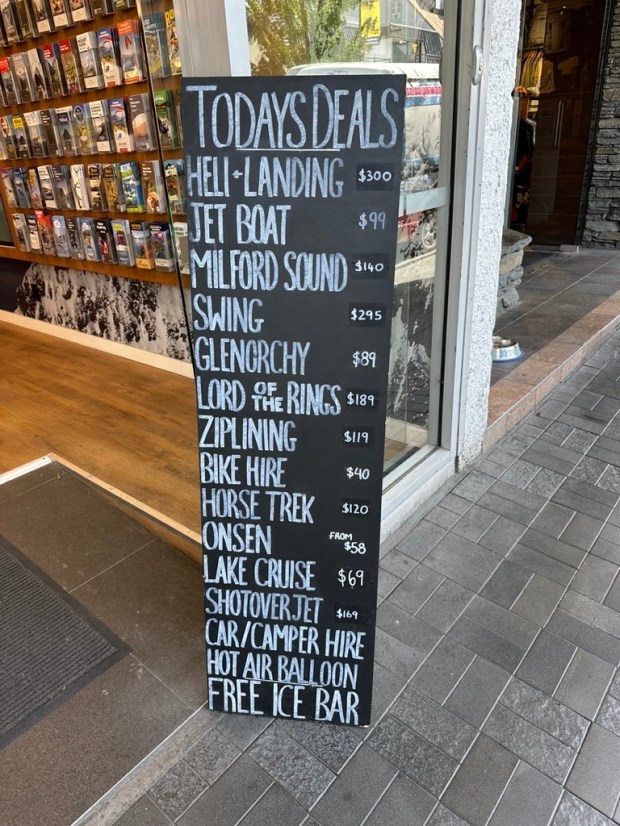 TODAYS DEALS
HELI-LANDING $300
JET BOAT $99
MILFORD SOUND $140
SWING $295
GLENORCHY $89
LORD OF THE RINGS $189
ZIPLINING $119
BIKE HIRE $40
HORSE TREK $120
ONSEN FROM $58
LAKE CRUISE $69
SHOTOVER JET $169
CAR/CAMPER HIRE
HOT AIR BALLOON
FREE ICE BAR